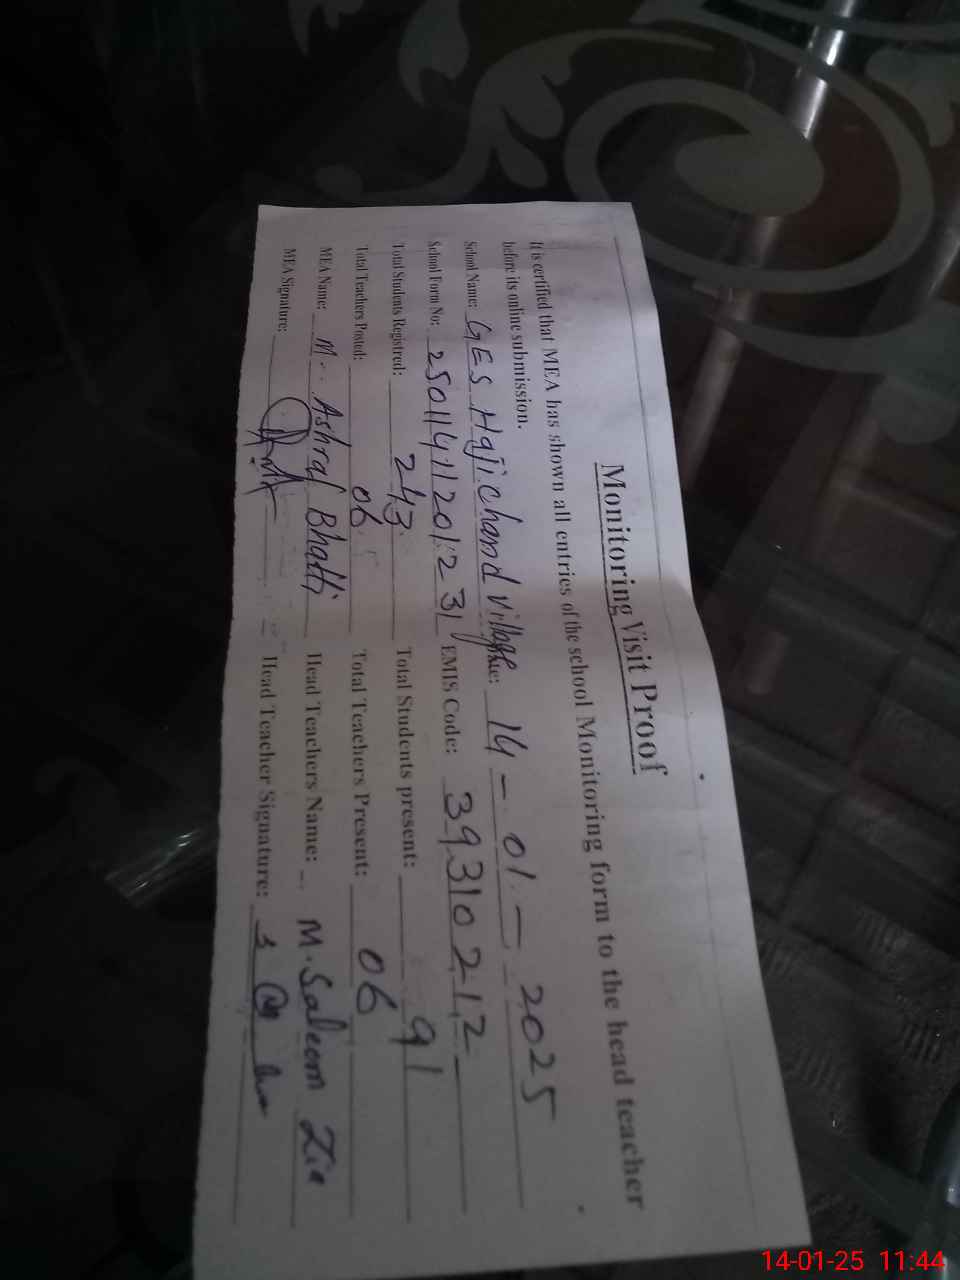 Monitoring Visit Proof
It is certified that MEA has shown all entries of the school Monitoring form to the head teacher
before its online submission.
School Name: GES Haji Chand village Date: 14-01-2025
School Form No: 25011411201231 EMIS Code: 39310212
Total Students Registred: 243 Total Students present: 91
Total Teachers Posted: 06 Total Teachers Present: 06
MEA Name: M. Ashraf Bhatti Head Teachers Name: M. Saleem Zia
MEA Signature: Head Teacher Signature:
14-01-25 11:44